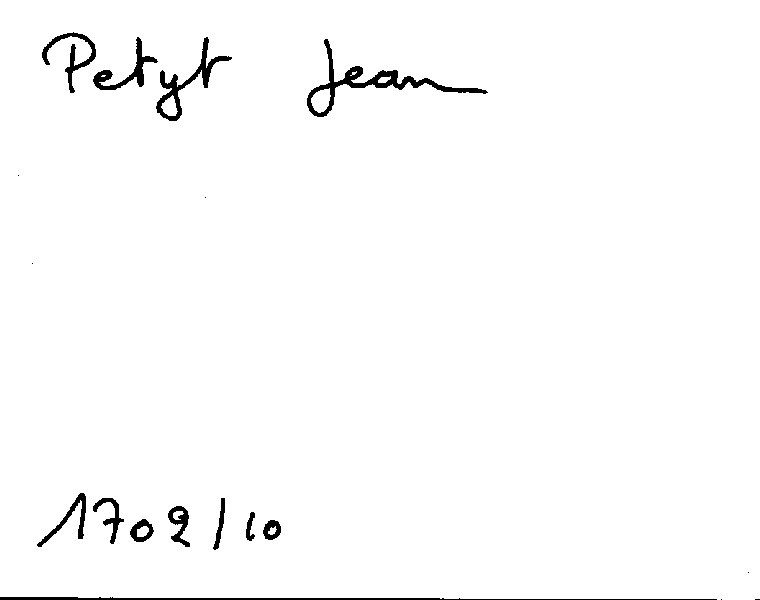 Petyt Jean
1702/10